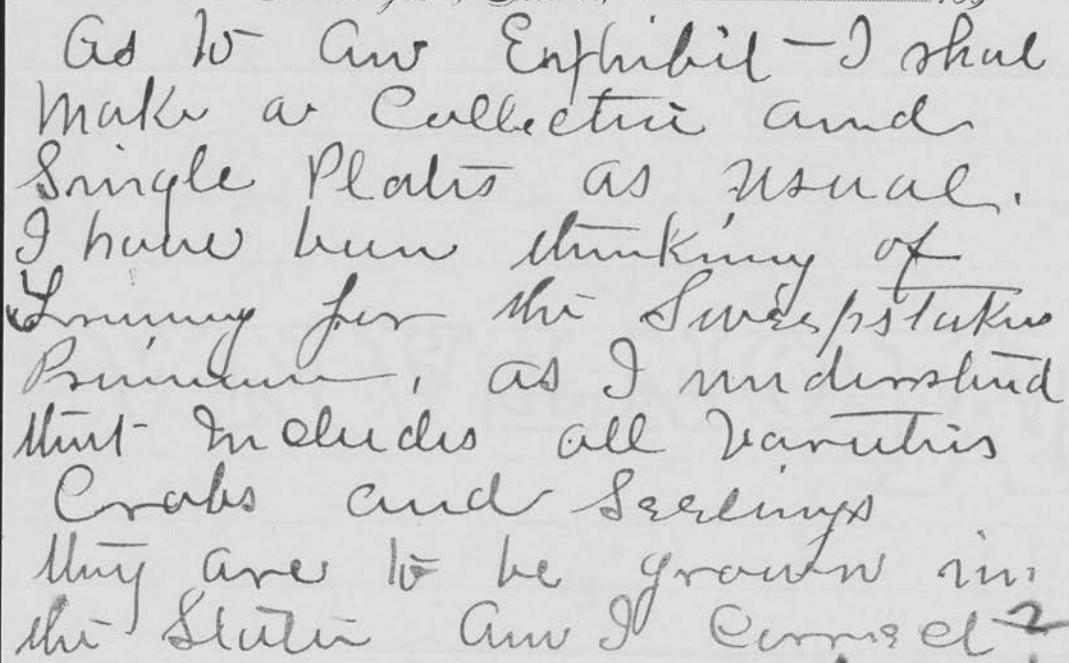 As to an Exhibit - I shal
make a Collection and
Single Plates as usual.
I have been thinking of
for the Sweepstakes
Premium, as I understand
that Includes all Varieties
Crabs and Seelings
they are to be grown in
the State Am I Correct?